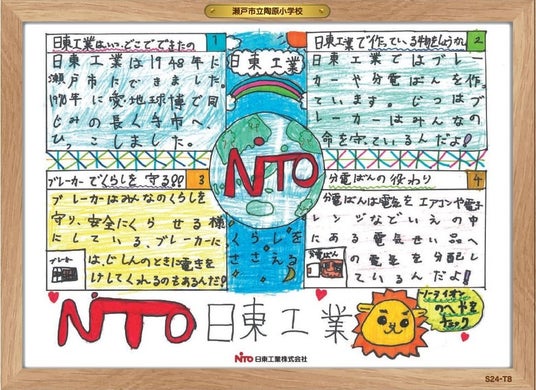 瀬戸市立陶原小学校
日東工業はいつ、どこでできたの
1
日東工業は1948年に
瀬戸市にできました。
年に愛地球博で同
じみの長く手市へ、
ひっこしました。
日東工業
日東工業で作っている物をしょうかい
2
日東工業ではブレー
カーや分電ばんを作っ
ています。じつはブ
レーカーはみんなの
命を守っているんだよ!
NITO
ブレーカーでくらしを守る!?
3
ブレーカーはみんなのくらしを
守り、安全にくらせる様
にしている、ブレーカーに
は、じしんのときに電きを
けしてくれるのもあるんだ!
ブレーカー
くらしを
ささえる
分電ばんの役わり
4
分電ばんは電気をエアコンや電子
レンジなどでいえの中
にある電気せい品へ
の電気を分配し
ているんだよ!
分電ばん
NITO 日東工業
のへやを
チェック
NITO 日東工業株式会社
S24-T8